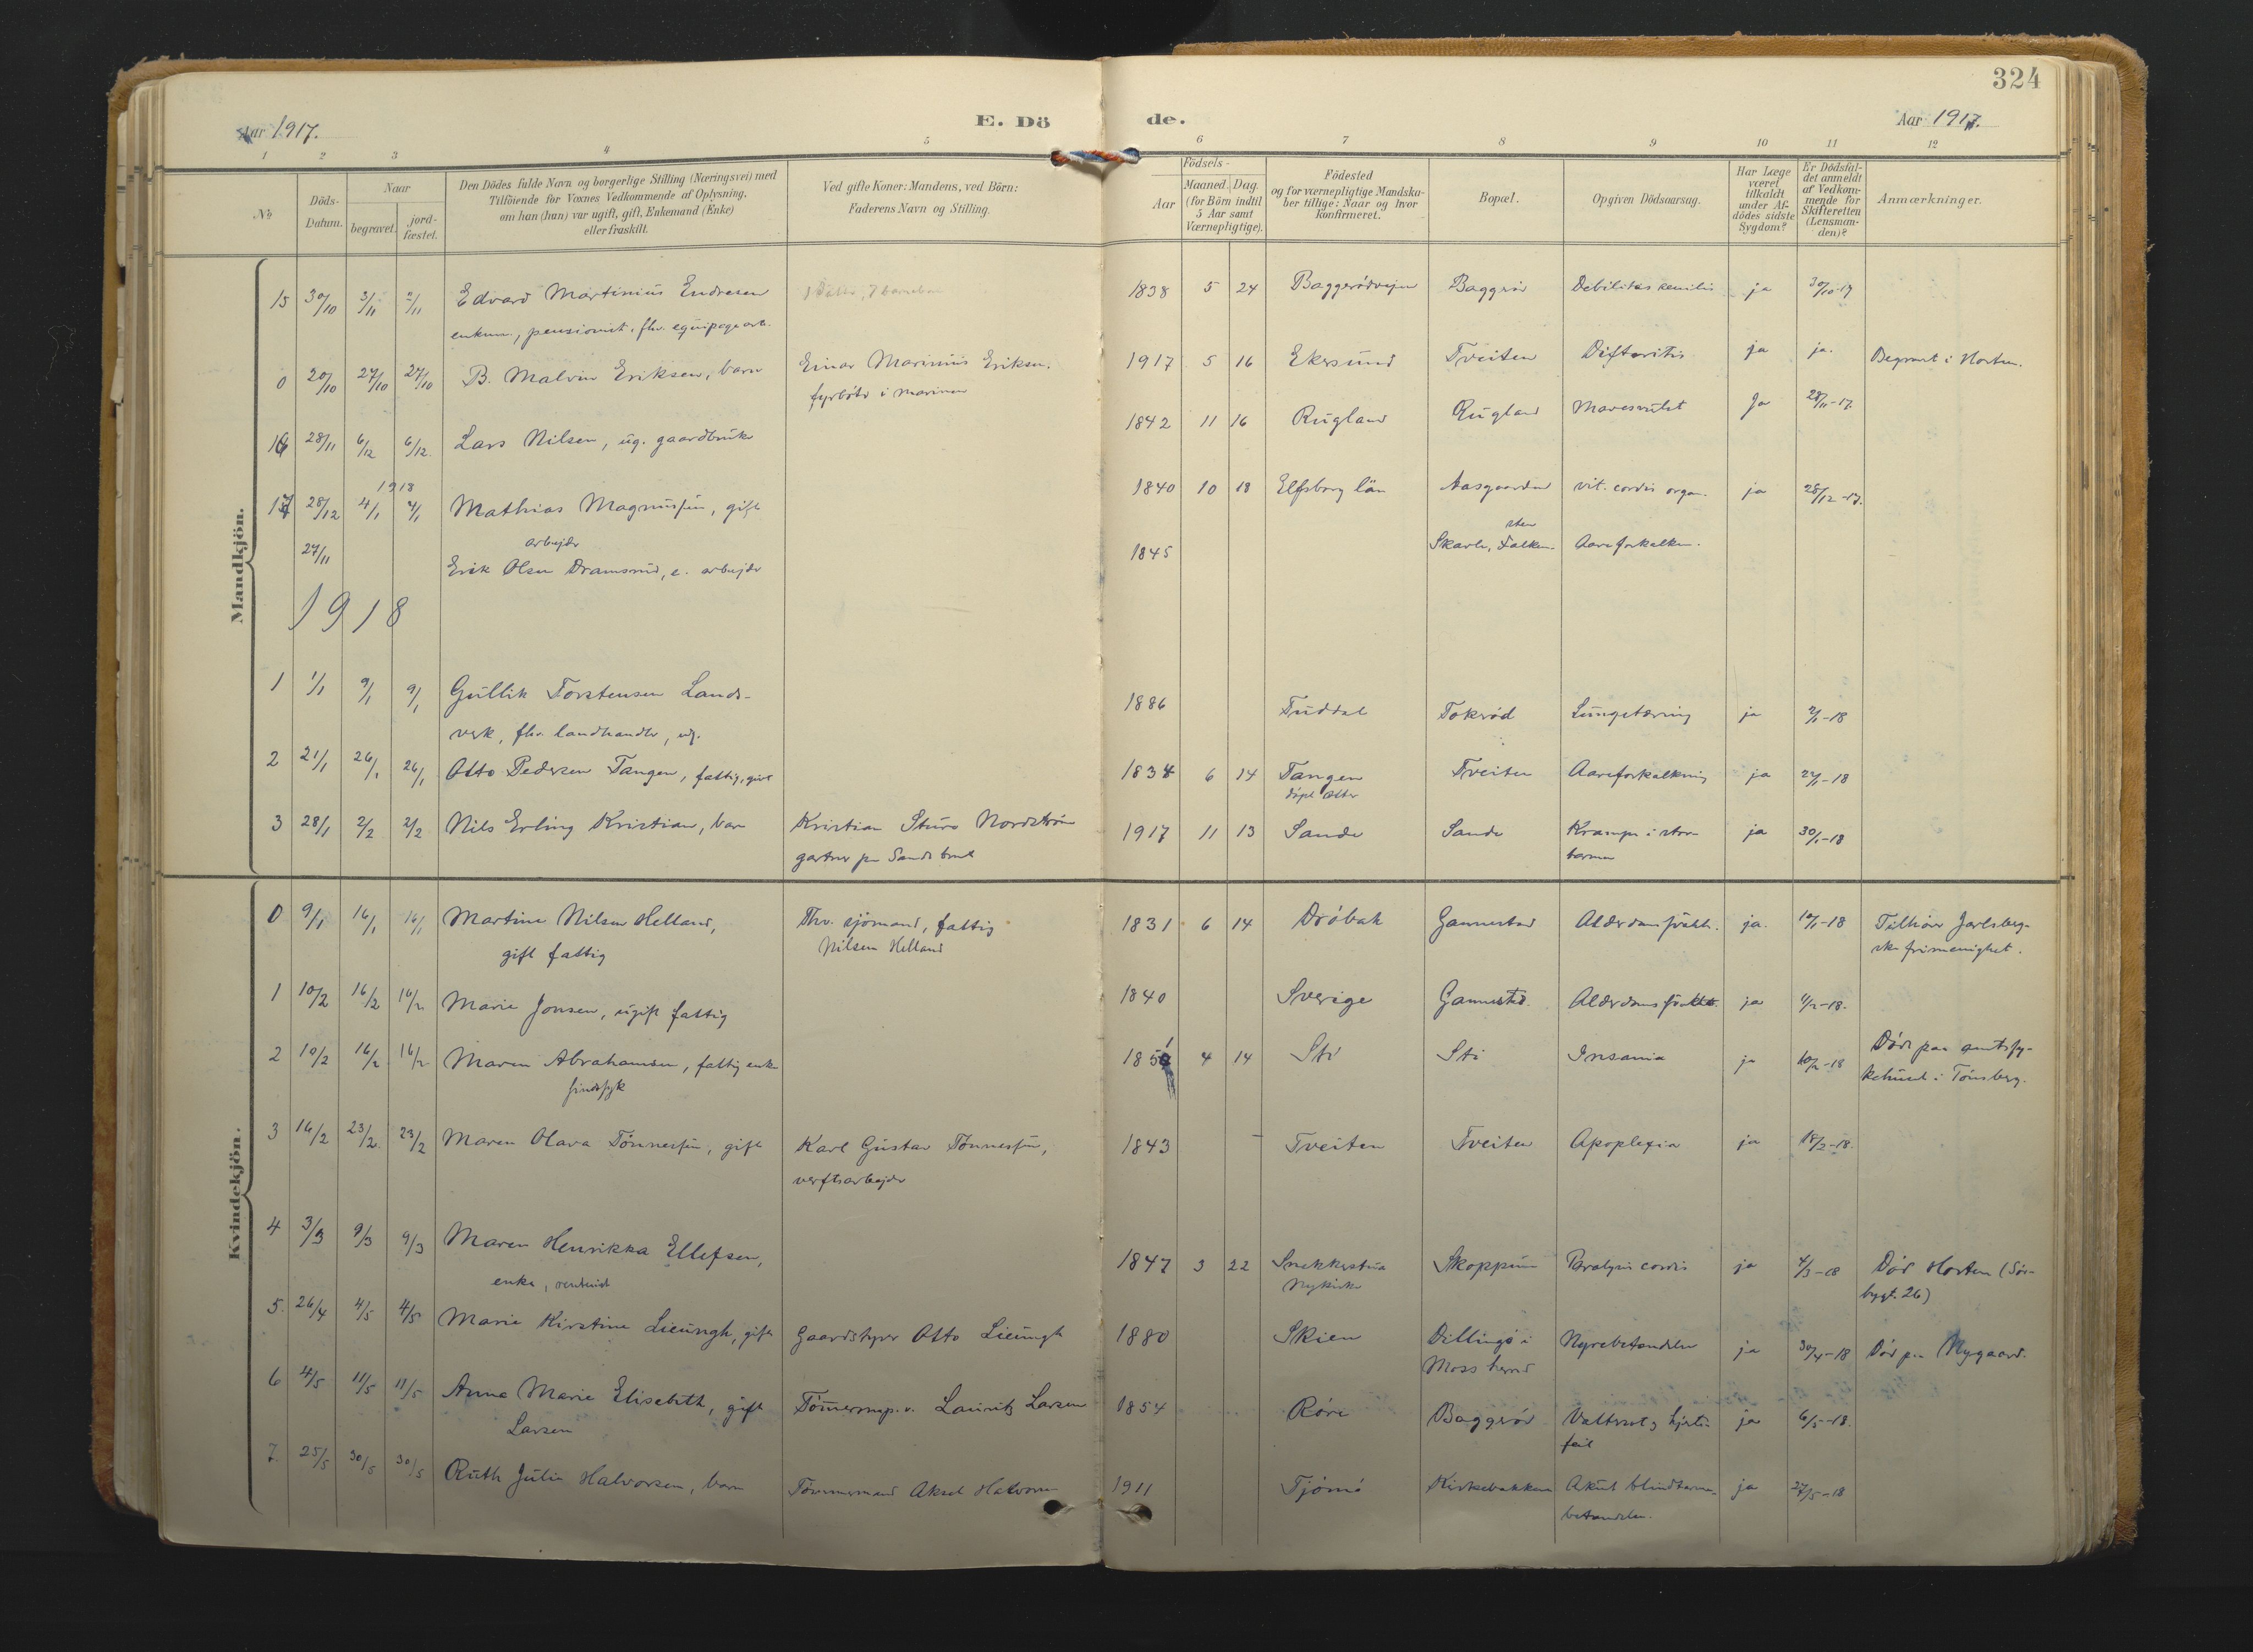 324
Aar 1917.
E. Dö de.
Aar 1917.
1 2 3 4 5 6 7 8 9 10 11 12
No
Döds-Datum.
Naar
begravet.
jord-fæstet.
Den Dödes fulde Navn og borgerlige Stilling (Næringsvei) med
Tilföiende for Voxnes Vedkommende af Oplysning,
om han (hun) var ugift, gift, Enkemand (Enke)
eller fraskilt.
Ved gifte Koner: Mandens, ved Börn:
Faderens Navn og Stilling.
Födsels-
Aar
Maaned. Dag.
(for Börn indtil
5 Aar samt
Værnepligtige).
Födested
og for værnepligtige Mandska-
ber tillige: Naar og hvor
konfirmeret.
Bopæl.
Opgiven Dödsaarsag.
Har Læge
været
tilkaldt
under Af-
dödes sidste
Sygdom?
Er Dödsfal-
det anmeldt
af Vedkom-
mende for
Skifteretten
(Lensman-
den)?
Anmærkninger.
Mandkjön.
15 30/10 3/11 3/11 Edvard Martinius Endresen 1838 5 24 Baggerödveien Baggeröd Debilitas senilis ja 30/10-17
enkem., pensionist, fhv. equipagearb.
0 20/10 27/10 27/10 B. Malvin Eriksen, barn Einar Marinius Eriksen, 1917 5 16 Ekersund Tveiten Difteritis ja ja. Begravet i Horten.
fyrböter i marinen
16 28/11 6/12 6/12 Lars Nilsen, ug. gaardbruker 1842 11 16 Rugland Rugland Mavesvulst Ja 28/11-17.
1918
17 28/12 4/1 4/1 Mathias Magnussen, gift 1840 10 18 Elfsborg län Aasgaarden vit. cordis organ. ja 28/12-17.
arbejder
27/11 Erik Olsen Dramsrud, e. arbejder 1845 Skarle, Falkensten Aareforkalkn.
1918
1 1/1 9/1 9/1 Gullik Torstensen Lands- 1886 Tuddal Tokröd Lungetæring ja 2/1-18
verk, fhv. landhandler, ug.
2 21/1 26/1 26/1 Otto Pedersen Tangen, fattig, gift 1834 6 14 Tangen Tveiten Aareforkalkning ja 22/1-18
3 28/1 2/2 2/2 Nils Erling Kristian, barn Kristian Sture Nordström 1917 11 13 Sande Sande Krampe i stru- ja 30/1-18
gartner paa Sande bruk
Kvindekjön.
0 9/1 16/1 16/1 Martine Nilsen Helland, Fhv. sjömand, fattig 1831 6 14 Dröbak Gannestad Alderdomssvakh. ja. 10/1-18 Tilhörer Jarlsberg-
gift fattig Nilsen Helland ske frimenighet.
1 10/2 16/2 16/2 Marie Jonsen, ugift fattig 1840 Sverige Gannestad. Alderdomssvakh. ja 11/2-18.
2 10/2 16/2 16/2 Maren Abrahamsen, fattig enke 1851 4 14 Sti Sti Insania ja 10/2-18 Död paa amtssy-
sindssyk kehuset i Tönsberg.
3 16/2 23/2. 23/2 Maren Olava Tönnessen, gift Karl Gustav Tönnessen, 1843 - Tveiten Tveiten Apoplexia ja 18/2-18.
verftsarbejder
4 3/3 9/3 9/3 Maren Henrikka Ellefsen, 1847 3 22 Snekkestua Skoppum Paralysis cordis ja 4/3-18 Död Horten (Sör-
enke, rentenist Nykirke bygt. 26)
5. 26/4 4/5 4/5 Marie Kirstine Lieungh, gift Gaardstyrer Otto Lieungh 1880 Skien Dillingö i Nyrebetændelse ja 30/4-18 Död paa Nygaard.
Moss herred
6 4/5 11/5 11/5 Anna Marie Elisabeth, gift Tömermand Lauritz Larsen 1854 Röre Baggeröd Vattersot og hjerte- ja 6/5-18.
Larsen feil
7. 25/5 30/5 30/5 Ruth Julie Halvorsen, barn Tömmermand Aksel Halvorsen 1911 Tjömö Kirkebakken Akut blindtarms- ja 27/5-18
betændelse.